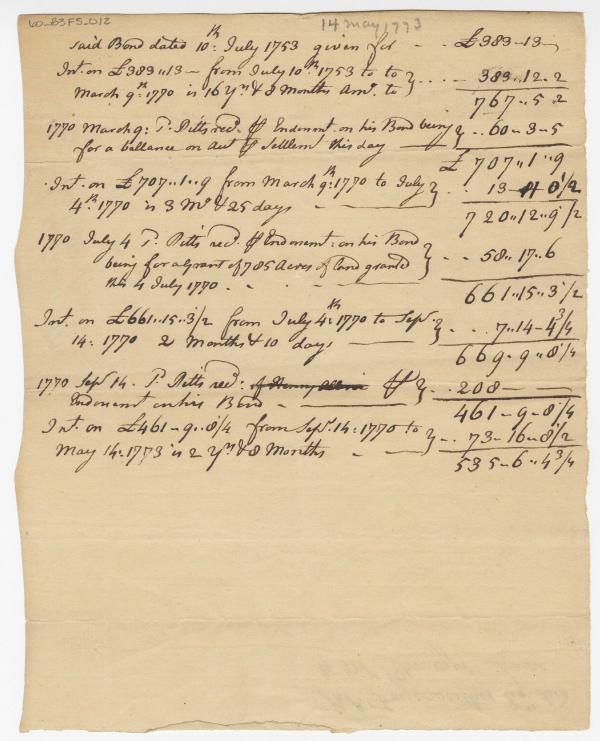 LO-B3F5-012
14 May 1773
said Bond dated 10th: July 1753 given for - - £383-13-
Int. on £383,,13- from July 10th 1753 to to } . . . . 383..12..2
March 9th: 1770 is 16 Yrs & 8 Months Amt. to
767..5 2
1770 March 9: T. Pitts recd. ⅌ Endorsmt. on his Bond being } . . 60-3-5
for a ballance on Act. of Settlemt. this day
£ 707,,1,,9
Int. on £707,,1,,9 from March 9th: 1770 to July } . . 13-4 0 1/2
4th: 1770 is 3 Mo. & 25 days
720,,12,,9 1/2
1770 July 4 T. Pitts recd. ⅌ Endorsmt: on his Bond } - . 58..17..6
being for a Grant of 785 Acres of land granted
this 4 July 1770 - .
661,,15,,3 1/2
Int. on £661,,15,,3 1/2 from July 4th: 1770 to Sepr. } - . . 7,,14-4 3/4
14: 1770 2 Months & 10 days
669-9..8 1/4
1770 Sepr. 14. T. Pitts recd: ⅌ } - 208 - -
Endorsment on his Bond -
461-9-8 1/4
Int. on £461-9..8 1/4 from Sepr. 14: 1770 to } - . 73-16-8 1/2
May 14: 1773 is 2 Yrs & 8 Months
535-6,,4 3/4